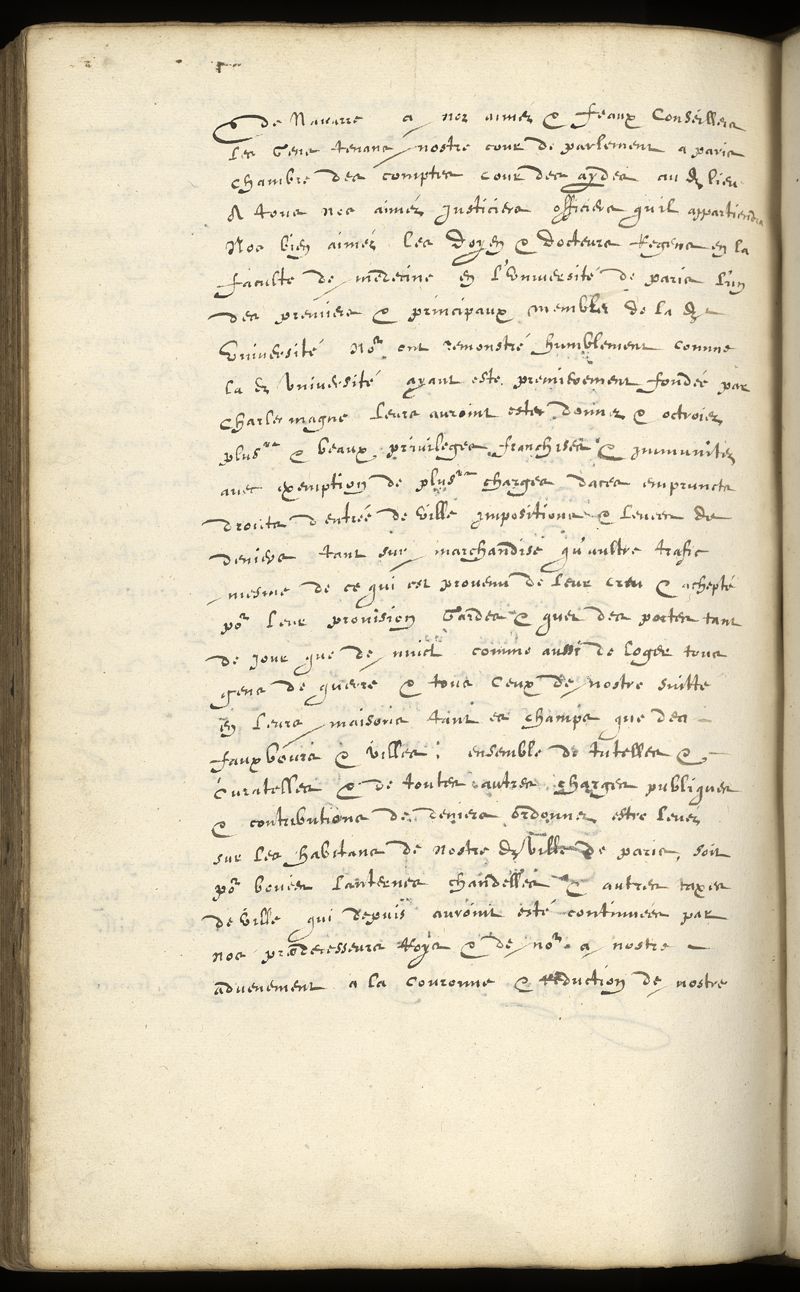 De Navarre a noz aimez & feaux Conseillers
les Gens tenans nostre cour de parlement a paris
chambre des comptes cour des aydes au dt lieu
& tous nos aimez justiciers officiers qu'il appartiendra
Nos bien aimez les doyen & docteurs Regens en la
faculté de medecine en l'Université de paris l'un
des premiers & principaux membres de la dt
Université Nor ont remonstré humblement comme
la dt Université ayant esté premierement fondée par
Charlesmagne leurs auroint estez donnez & octroiez
plusrs & beaux privileges franchises & immunitez
avec exemption de plusrs charges daces emprunts
droits d'entrée de ville impositions & levees de
deniers tant sur marchandise qu'aultre trafic
mesme de ce qui est provenu de leur creu & achepté
por leur provision Gardes & guet des portes tant
de jour que de nuict comme aussi de loger tous
gens de guerre & tous ceux de nostre suitte
en leurs maisons tant es champs que des
fauxbours & villes; ensemble de tutelles &
Curatelles & de toutes autres charges publiques
& contributions de deniers ordonnez estre levez
sur les habitans de nostre dt ville de paris, soit
por boues lanternes chandelles & autres taxes
de ville qui depuis auroint esté continuées par
nos prædecesseurs Roys & de nor a nostre
advenement a la couronne & Reduction de nostre